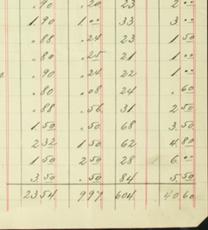 .90 .20 23 2 00
1 90 1 00 33 3 00
.88 .24 23 1 50
.80 .25 21 1 00
.90 .24 22 1 00
.80 .08 24 .60
.88 .56 31 2 50
1 50 .50 68 3 50
2 32 1 50 62 4 80
1 50 2 50 28 6 00
3 50 .50 84 5 50
23 54 9 97 604 40 60